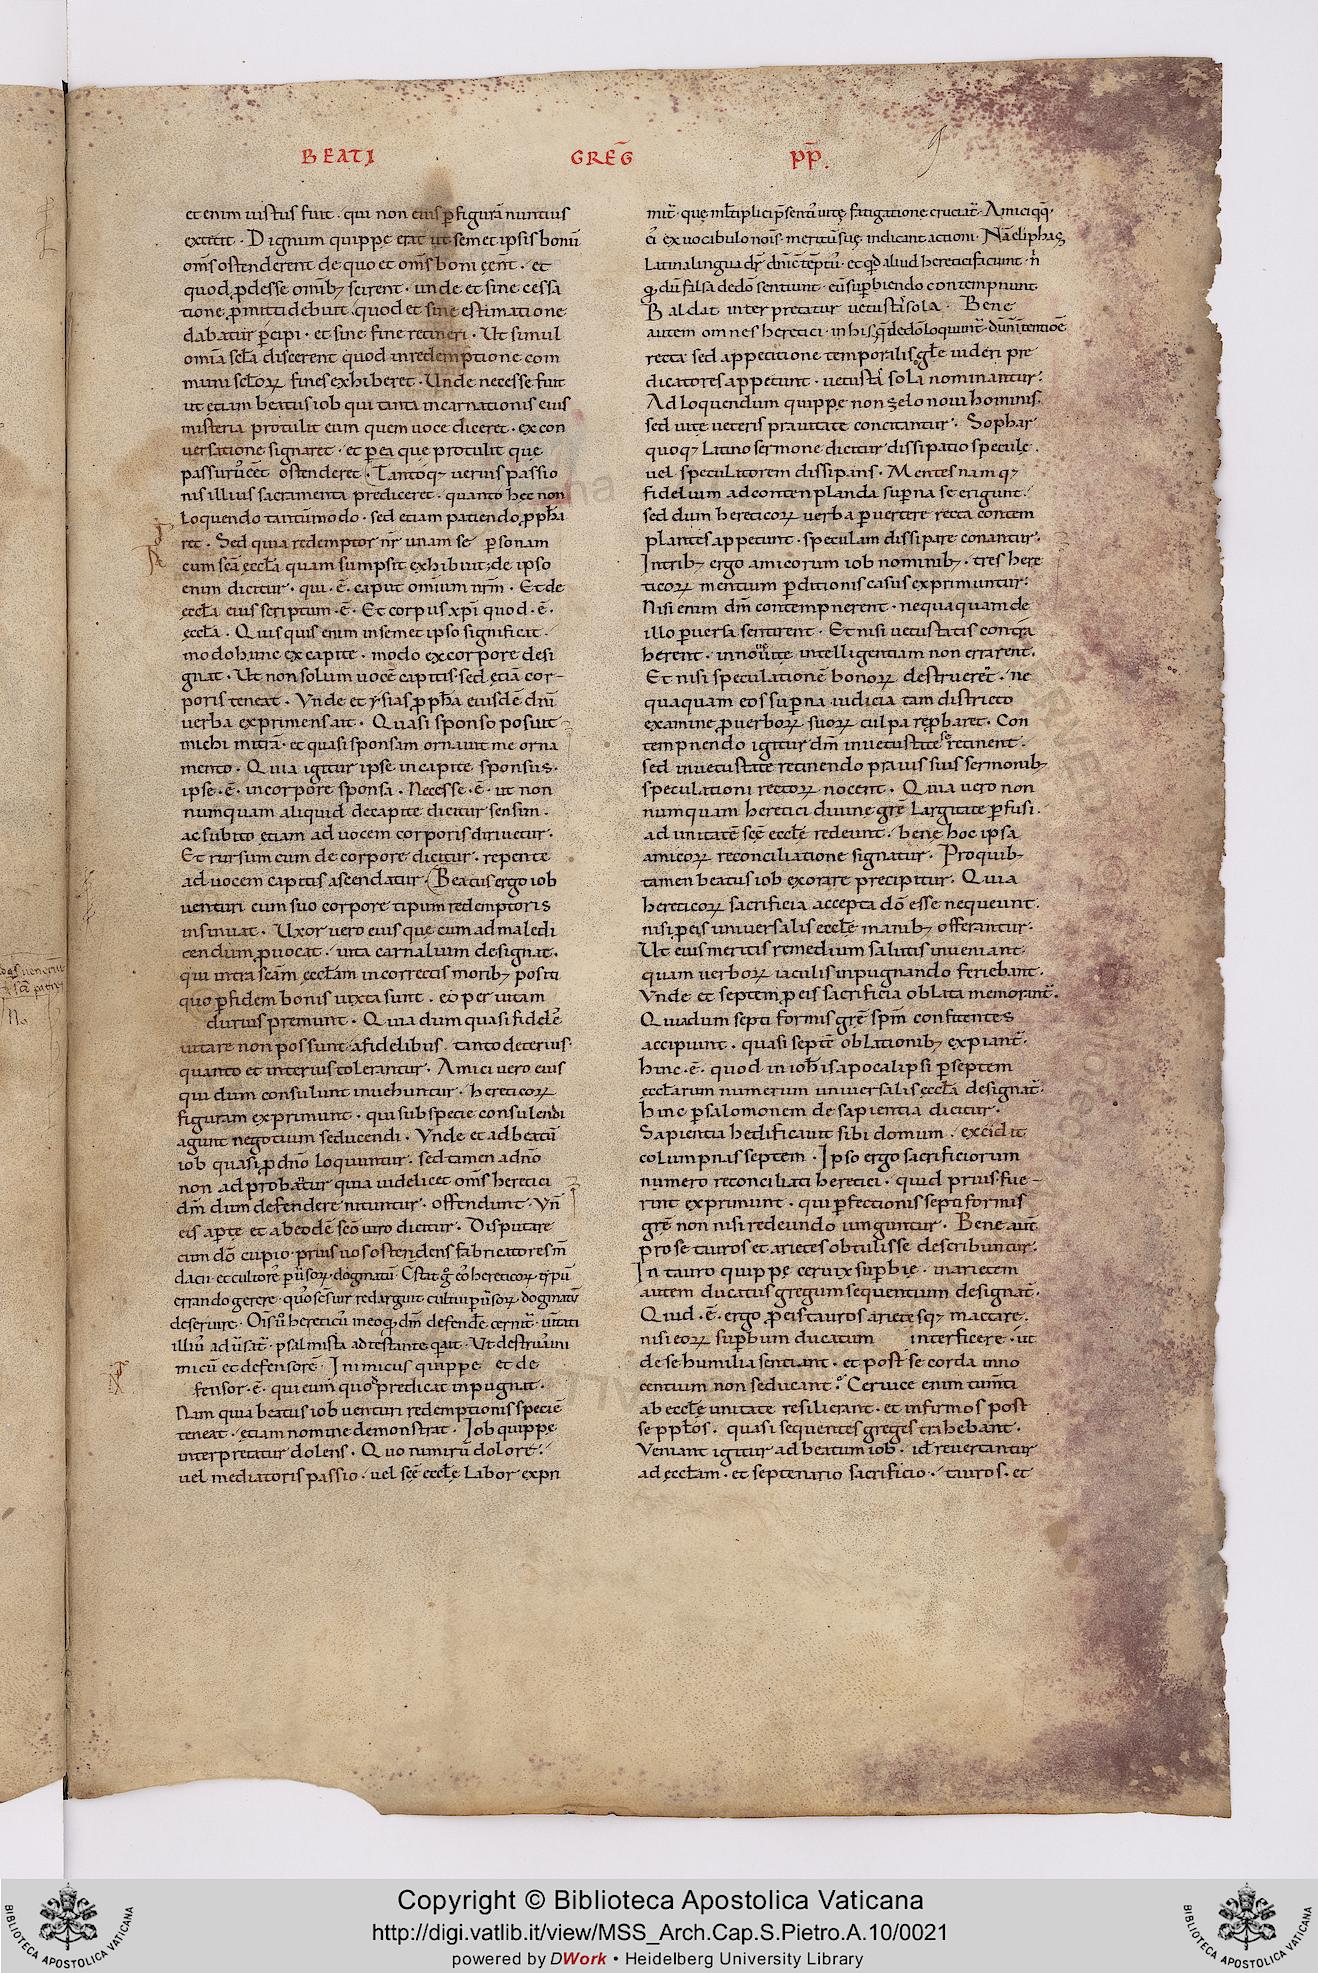 BEATI GREḠ PP̄.
et enim iustus fuit · qui non eius p̄figurā nuntius
extetit · Dignum quippe erat ut semet ipsis bonū
om̄s ostenderent de quo et om̄s boni eēnt · et
quod ꝓdesse omnibꝫ scirent · unde et sine cessa
tione ꝓmitti debuit · quod et sine estimatione
dabatur ꝑcipi · et sine fine retineri · Ut simul
omīa sc̄la dicerent quod in redemptione com
muni sc̄loꝝ fines exhiberet · Unde necesse fuit
ut etiam beatus iob qui tanta incarnationis eius
misteria protulit eum quem uoce diceret · ex con
uersatione signaret · et ꝑ ea que protulit que
passurū eēt ostenderet · Tantoqꝫ uerius passio
nis illius sacramenta prediceret · quanto hec non
loquendo tantūmodo · sed etiam patiendo ꝓph̄a
ret · Sed quia redemptor nr̄ unam se ꝑsonam
cum sc̄a eccl̄a quam sumpsit exhibuit; de ipso
enim dicitur · qui · ē · caput omnium nr̄m · Et de
eccl̄a eius scriptum · ē · Et corpus xp̄i quod · ē ·
eccl̄a · Quisquis enim in semet ipso significat ·
modo hunc ex capite · modo ex corpore desi
gnat · Ut non solum uocē capitis · sed etiā cor-
poris teneat · Vnde et ysias ꝓph̄a eiusdē dn̄i
uerba exprimens ait · Quasi sponso posuit
michi mitrā · et quasi sponsam ornauit me orna
mento · Quia igitur ipse in capite sponsus ·
ipse · ē · in corpore sponsa · Necesse · ē · ut non
numquam aliquid de capite dicitur sensim ·
ac subito etiam ad uocem corporis diriuetur ·
Et rursum cum de corpore dicitur · repente
ad uocem capitis ascendatur · Beatus ergo iob
uenturi cum suo corpore tipum redemptoris
insinuat · Uxor uero eius que eum ad maledi
cendum ꝓuocat · uita carnalium designat ·
qui intra sc̄am eccl̄am incorrectis moribꝫ positi
quo ꝑ fidem bonis iuxta sunt · eo per uitam
durius premunt · Quia dum quasi fidelē
uitare non possunt · a fidelibus · tanto deterius ·
quanto et interius tolerantur · Amici uero eius
qui dum consulunt inuehuntur · hereticoꝝ
figuram exprimunt · qui sub specie consulendi
agunt negotium seducendi · Vnde et ad beatū
iob quasi ꝓ dn̄o loquuntur · sed tamen a dn̄o
non ad probātur quia uidelicet om̄s heretici
dm̄ dum defendere nituntur · offendunt · Vn̄
eis aꝑte et ab eodē sc̄o uiro dicitur · Disputare
cum dō cupio · prius uos ostendens fabricatores m̄
dacii
errando gerere
deseruire ·
micū et defensorē · Inimicus quippe et de
fensor · ē · qui eum quo predicat inpugnat ·
Nam quia beatus iob uenturi redemptionis speciē
teneat · etiam nomine demonstrat · Iob quippe
interpretatur dolens · Quo nimirū dolore ·
uel mediatoris passio · uel sc̄e eccl̄e labor expri
mit̄ · que
Latina lingua
Baldat interpretatur uetustas sola · Bene
autem omnes heretici · in his
recta sed appetitione temporalis gl̄e uideri pre
dicatores appetunt · uetusta sola nominantur ·
Ad loquendum quippe non zelo noui hominis ·
sed uite ueteris prauitate concitantur · Sophar
quoqꝫ Latino sermone dicitur dissipatio specule ·
uel speculatorem dissipans · Mentes namqꝫ
fidelium ad contenplanda suꝑna se erigunt ·
sed dum hereticoꝝ uerba ꝑuertere recta contem
plantes appetunt · speculam dissipare conantur ·
In tribꝫ ergo amicorum iob nominibꝫ · tres here
ticoꝝ mentium ꝑditionis casus exprimuntur ·
Nisi enim dm̄ contempnerent · nequaquam de
illo ꝑuersa sentirent · Et nisi uetustatis contra
herent · in noue uite intelligentiam non errarent ·
Et nisi speculationē bonoꝝ destruerēt · ne
quaquam eos suꝑna iudicia tam districto
examine ꝓ uerboꝝ suoꝝ culpa reꝓbaret · Con
tempnendo igitur dm̄ in uetustate se retinent ·
sed in uetustate retinendo prauis suis sermonibꝫ
speculationi rectoꝝ nocent · Quia uero non
numquam heretici diuine gr̄e largitate ꝑfusi ·
ad unitatē sc̄e eccl̄e redeunt · bene hoc ipsa
amicoꝝ reconciliatione signatur · Pro quibꝫ
tamen beatus iob exorare precipitur · Quia
hereticoꝝ sacrificia accepta dō esse nequeunt ·
nisi ꝓ eis uniuersalis eccl̄e manibꝫ offerantur ·
Ut eius meritis remedium salutis inueniant
quam uerboꝝ iaculis inpugnando feriebant ·
Vnde et septem ꝓ eis sacrificia oblata memorant̄ ·
Quia dum septi formis gr̄e spm̄ confitentes
accipiunt · quasi septē oblationibꝫ expiant̄ ·
hinc · ē · quod in ioh̄is apocalipsi ꝑ septem
eccl̄arum numerum uniuersalis eccl̄a designat̄ ·
hinc ꝑ salomonem de sapientia dicitur ·
Sapientia hedificauit sibi domum · excidit
columpnas septem · Ipso ergo sacrificiorum
numero reconciliati heretici · quid prius fue-
rint exprimunt · qui ꝑfectionis septiformis
gr̄e non nisi redeundo iunguntur · Bene aut̄
pro se tauros et arietes obtulisse describuntur ·
In tauro quippe ceruix suꝑbie · in arietem
autem ducatus gregum sequentium designat̄ ·
Quid · ē · ergo ꝓ eis tauros arietesqꝫ mactare ·
nisi eoꝝ suꝑbum ducatum interficere · ut
de se humilia sentiant · et post se corda inno
centium non seducant · Ceruice enim tum̄ti
ab eccl̄e unitate resilierant · et infirmos post
se ppl̄os · quasi sequentes greges trahebant ·
Veniant igitur ad beatum iob · id ÷ reuertantur
ad eccl̄am · et septenario sacrificio · tauros · et
Copyright © Biblioteca Apostolica Vaticana
http://digi.vatlib.it/view/MSS_Arch.Cap.S.Pietro.A.10/0021
powered by DWork • Heidelberg University Library
BIBLIOTECA APOSTOLICA VATICANA
BIBLIOTECA APOSTOLICA VATICANA